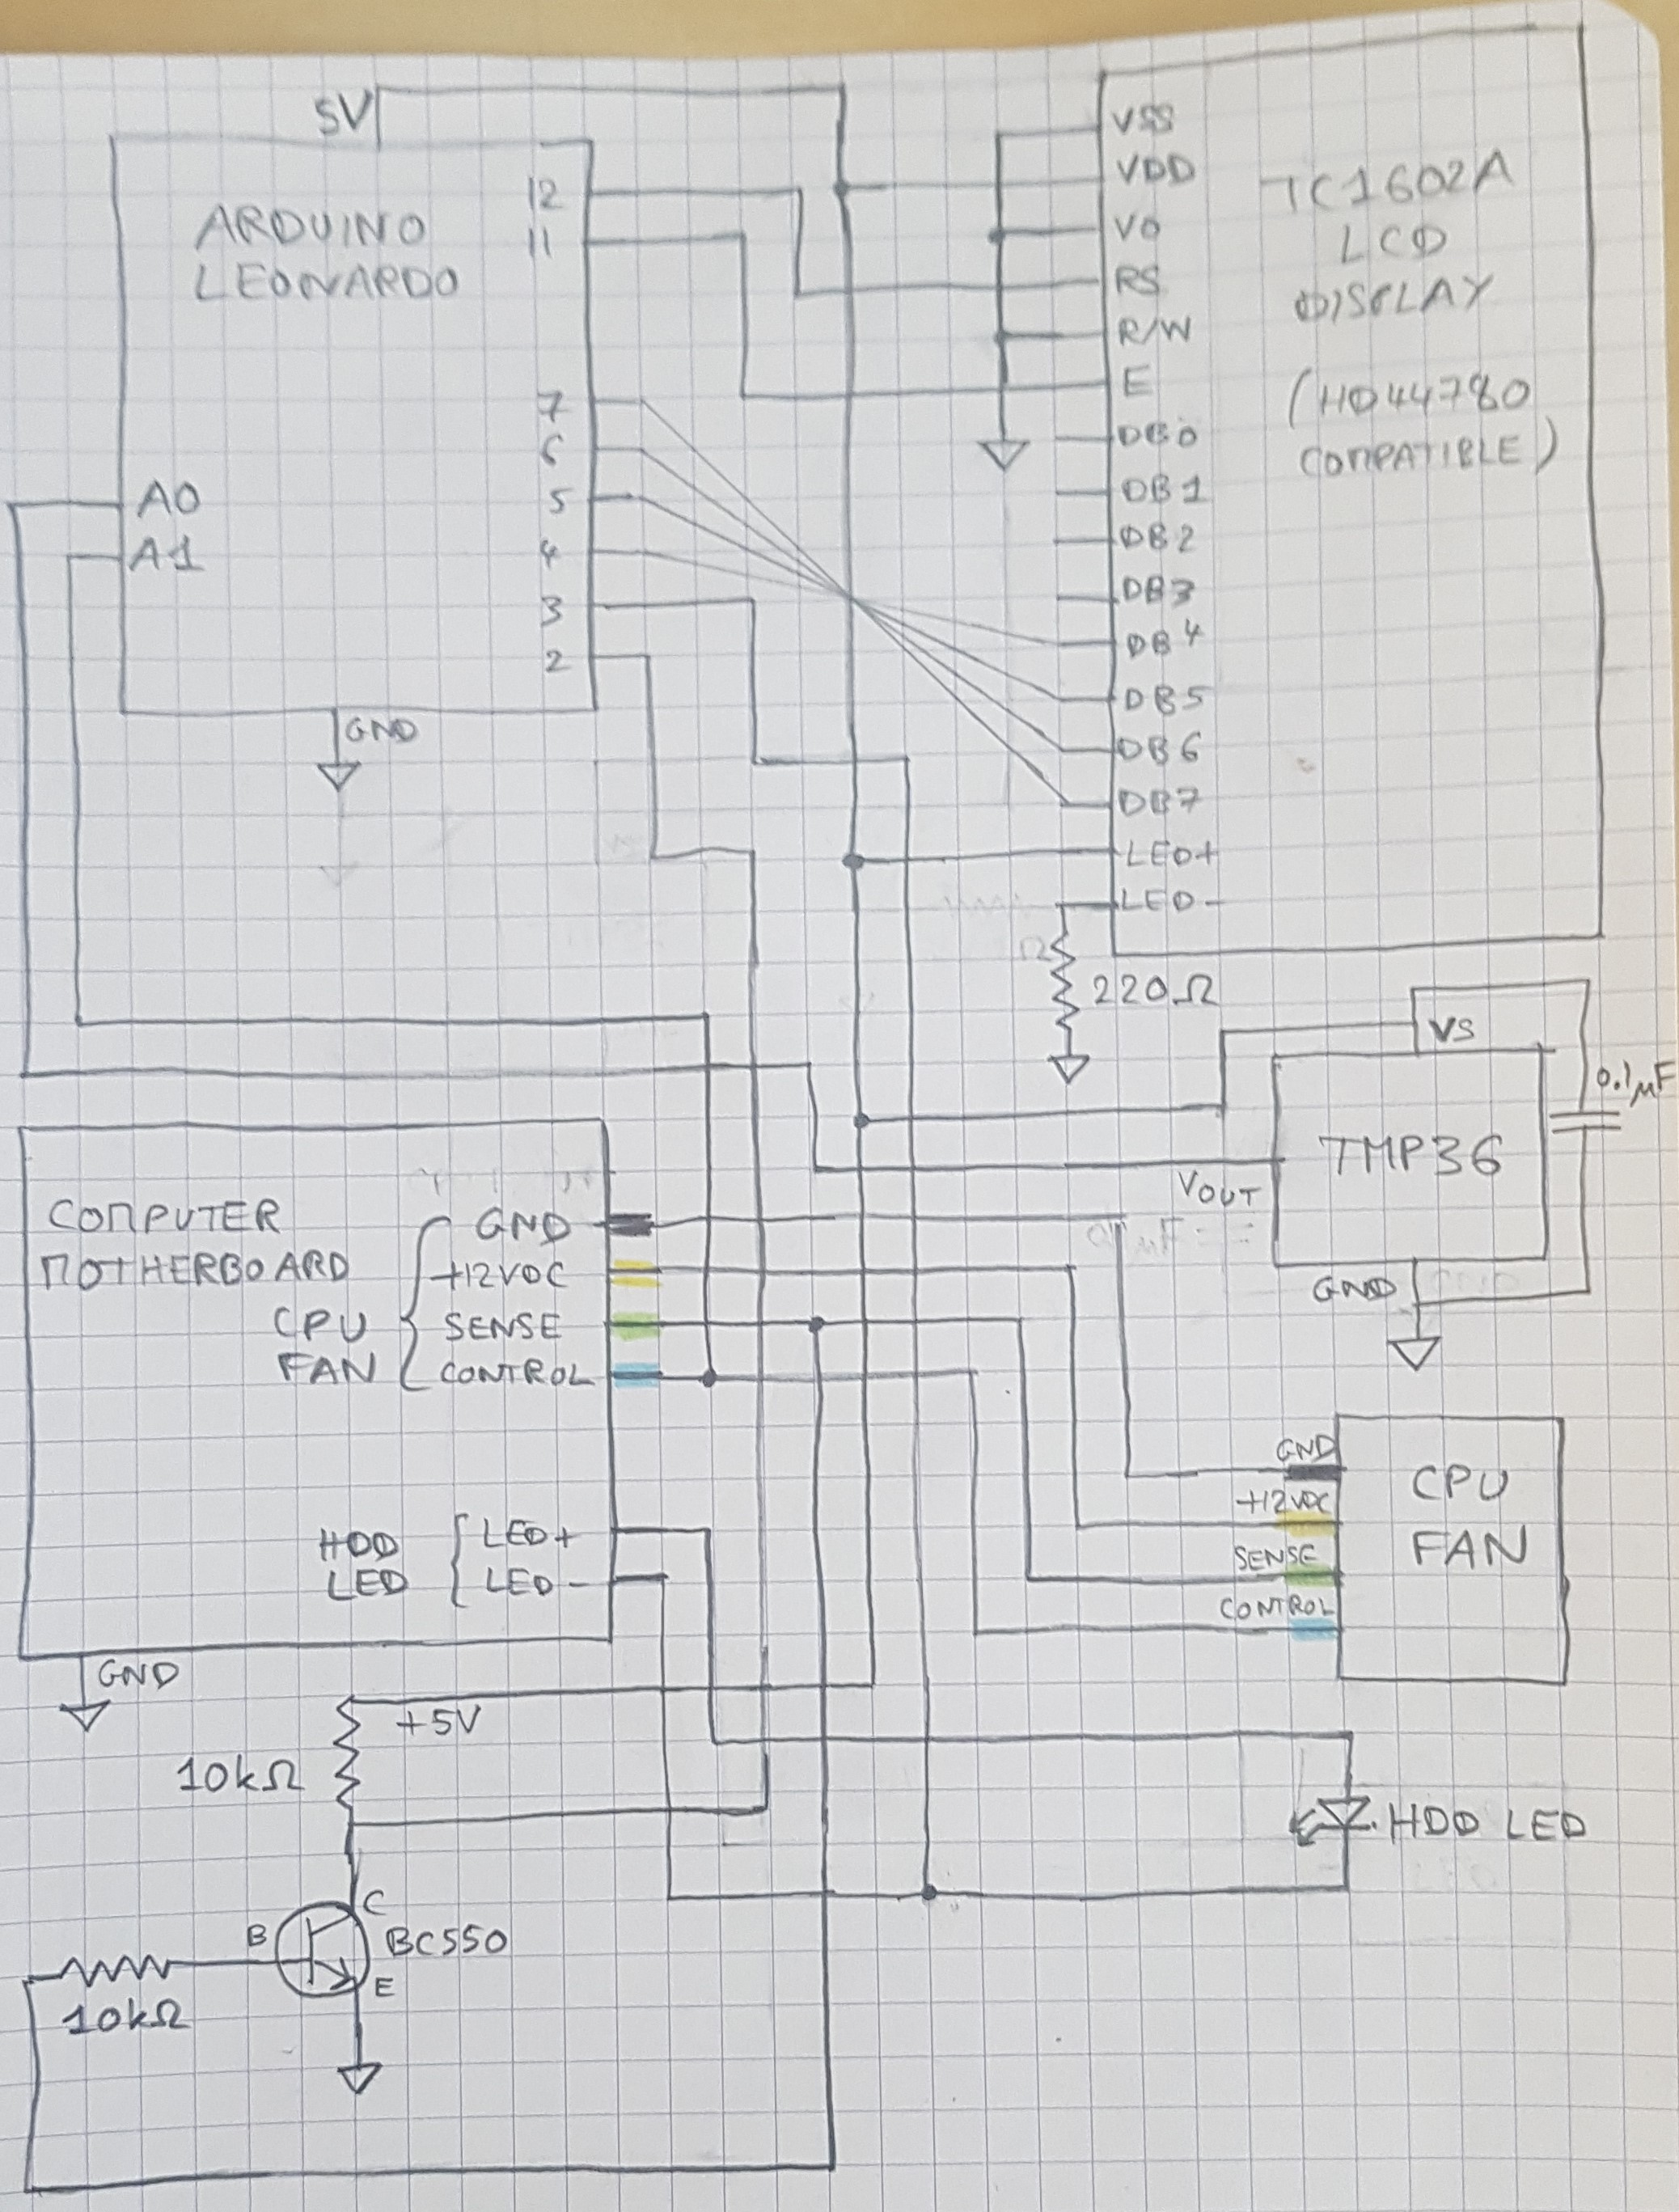 5V
ARDUINO
LEONARDO
12
11
7
6
5
4
3
2
A0
A1
GND
VSS
VDD
VO
RS
R/W
E
DB0
DB1
DB2
DB3
DB4
DB5
DB6
DB7
LED+
LED-
TC1602A
LCD
DISPLAY
(HD44780
COMPATIBLE)
220Ω
VS
0.1μF
TMP36
VOUT
GND
COMPUTER
MOTHERBOARD
CPU
FAN
GND
+12VDC
SENSE
CONTROL
HDD
LED
LED+
LED-
GND
GND
+12VDC
SENSE
CONTROL
CPU
FAN
+5V
10kΩ
HDD LED
C
B
BC550
E
10kΩ